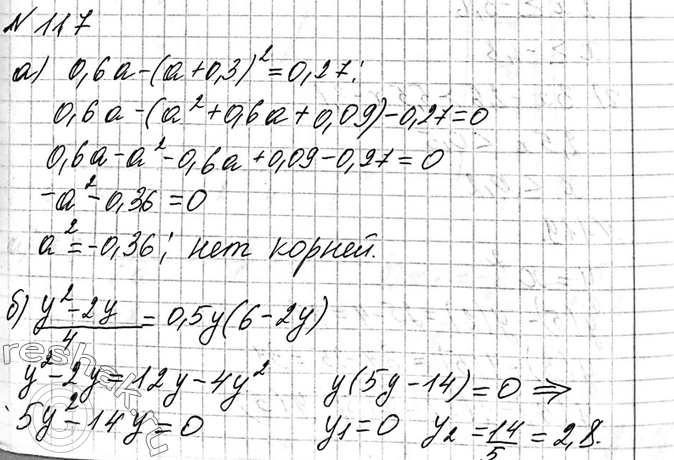 № 117
а) 0,6a-(a+0,3)²=0,27;
0,6a-(a²+0,6a+0,09)-0,27=0
0,6a-a²-0,6a+0,09-0,27=0
-a²-0,36=0
a²=-0,36; нет корней.
б) (y²-2y)/4 = 0,5y(6-2y)
y²-2y=12y-4y²
5y²-14y=0
y(5y-14)=0 ⇒
y₁=0 y₂=14/5=2,8.
reshak.ru